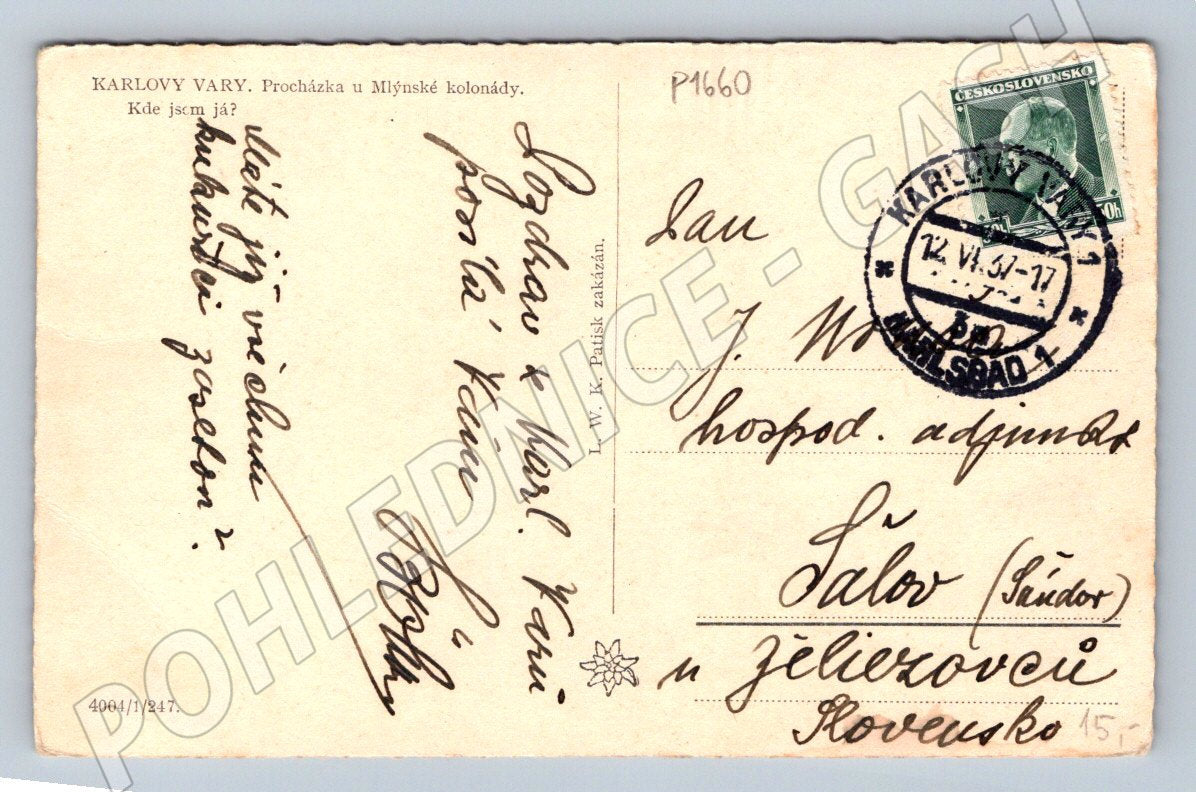 KARLOVY VARY. Procházka u Mlýnské kolonády.
Kde jsem já?
P1660
ČESKOSLOVENSKO
50h
KARLOVY VARY 1
12.VI.37-17
KARLSBAD 1
Pozdrav z Karl. Varů
posílá Vám
Máte již všechnu
kukuřici zaseton?
L. W. K. Patisk zakázán.
Pan
J.
hospod. adjunkt
Šalov (Sándor)
u Želiezovců
Slovensko
15,-
4004/1/247.
POHLEDNICE - GASH